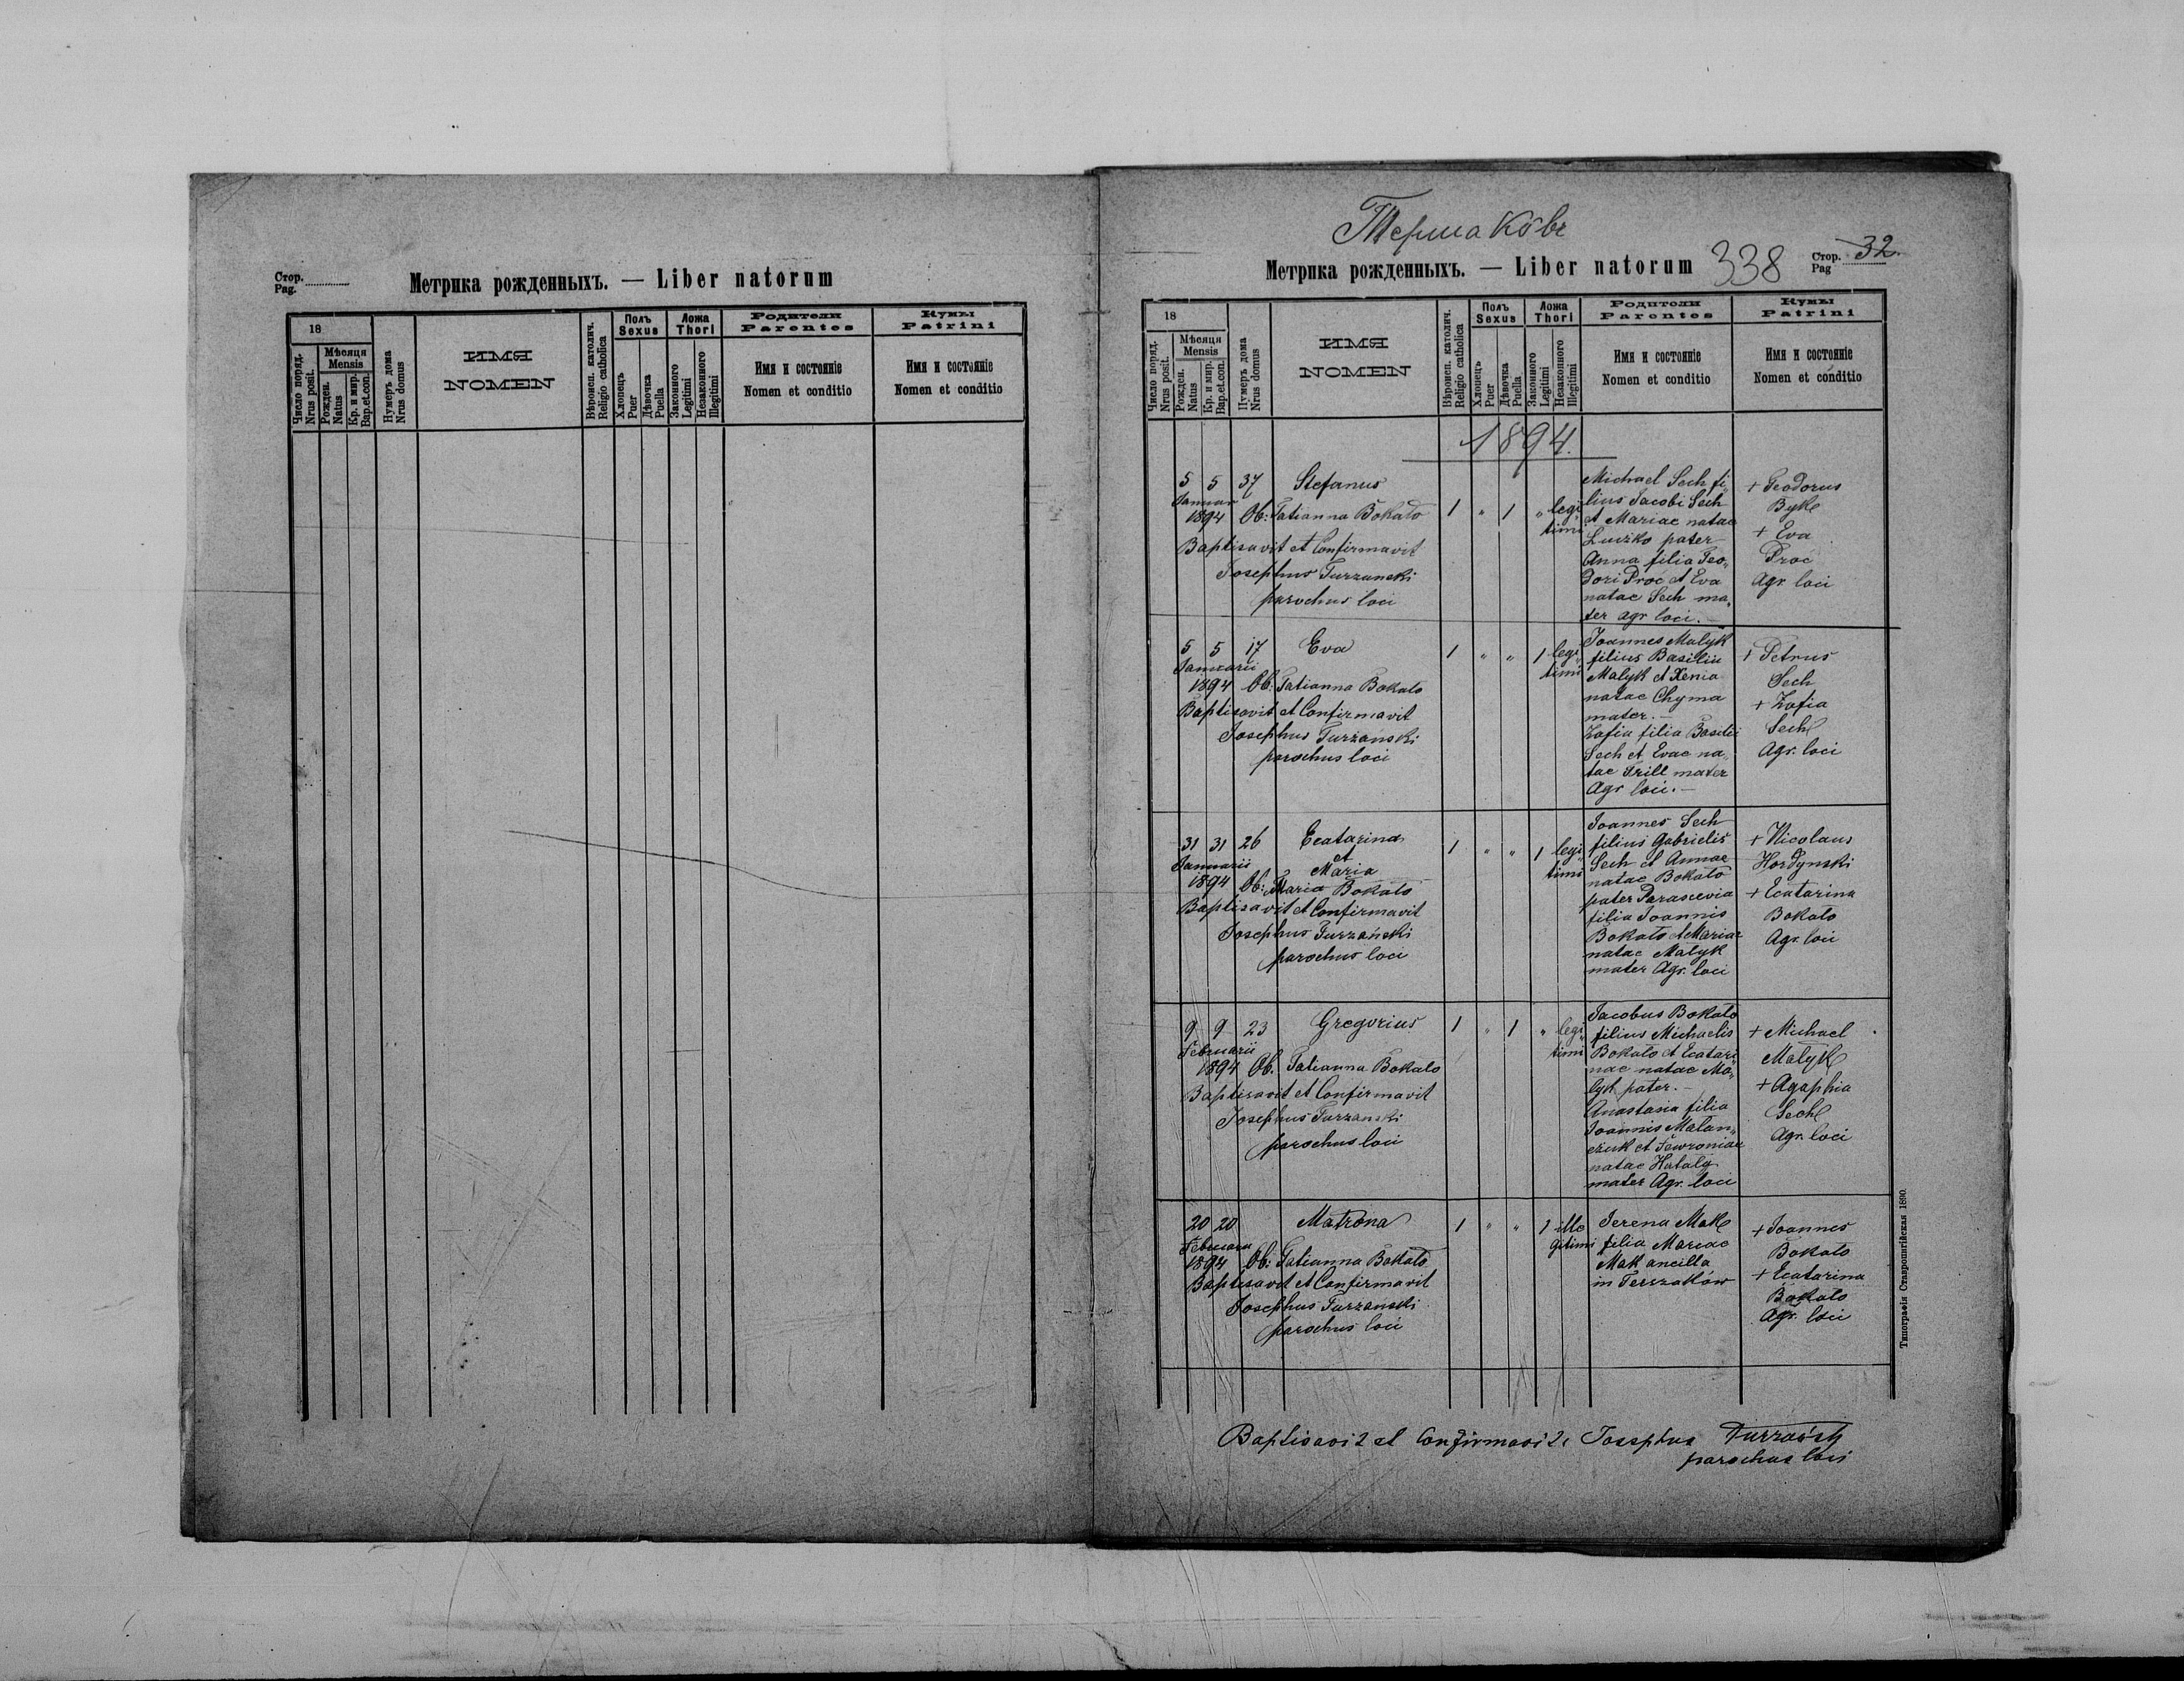 Стор.
Pag.
Метрика рожденныхъ. — Liber natorum
18
Число поряд.
Nrus posit.
Мѣсяця
Mensis
Рожден.
Natus
Кр. и мир.
Bap.et.con.
Нумеръ дома
Nrus domus
ИМЯ
NOMEN
Вѣроисп. католич.
Religio catholica
Полъ
Sexus
Хлопець
Puer
Дѣвочка
Puella
Ложа
Thori
Законного
Legitimi
Незаконного
Illegitimi
Родители
Parentes
Имя и состояніе
Nomen et conditio
Кумы
Patrini
Имя и состояніе
Nomen et conditio
Метрика рожденныхъ. — Liber natorum 338
Стор. 32
Pag
18
Число поряд.
Nrus posit.
Мѣсяця
Mensis
Рожден.
Natus
Кр. и мир.
Bap.et.con.
Нумеръ дома
Nrus domus
ИМЯ
NOMEN
Вѣроисп. католич.
Religio catholica
Полъ
Sexus
Хлопець
Puer
Дѣвочка
Puella
Ложа
Thori
Законного
Legitimi
Незаконного
Illegitimi
Родители
Parentes
Имя и состояніе
Nomen et conditio
Кумы
Patrini
Имя и состояніе
Nomen et conditio
1894.
5 5 37 Stefanus
Januar
1894 Ob: Tatianna Bokało
Baptisavit et Confirmavit
Josephus Turzanski
parochus loci
1 " 1 " legi
timi
Michael Sech fi„
lius Jacobi Sech
et Mariae natae
Luczko pater
Anna filia Teo„
dori Proć et Eva
natae Sech ma„
ter agr loci.
+ Teodorus
Byk
+ Eva
Proć
Agr loci
5 5 17 Eva
Januarii
1894 Ob: Tatianna Bokało
Baptisavit et Confirmavit
Josephus Turzanski
parochus loci
1 " " 1 legi
timi
Joannes Malyk
filius Basilii
Malyk et Xenia
natae Chyma
mater. —
Zofia filia Basilii
Sech et Evae na„
tae Trill mater
Agr loci. —
+ Petrus
Sech
+ Zofia
Sech
Agr. loci
31 31 26 Ecatarina
et
Maria
Januarii
1894 Ob: Maria Bokało
Baptisavit et Confirmavit
Josephus Turzański
parochus loci
1 " " 1 legi
timi
Joannes Sech
filius Gabrielis
Sech et Annae
natae Bokało
pater Parascevia
filia Joannis
Bokało et Mariae
natae Małyk
mater Agr. loci
+ Nicolaus
Hordynski
+ Ecatarina
Bokało
Agr. loci
9 9 23 Gregorius
Februarii
1894 Ob. Tatianna Bokało
Baptisavit et Confirmavit
Josephus Turzanski
parochus loci
1 " 1 " legi
timi
Jacobus Bokało
filius Michaelis
Bokało et Ecatari„
nae natae Ma„
lyk pater. —
Anastasia filia
Joannis Malan„
czuk et Fewroniae
natae
mater Agr. loci
+ Michael
Małyk
+ Agaphia
Sech
Agr. loci
20 20 Matrona
Februarii
1894 Ob: Tatianna Bokało
Baptisavit et Confirmavit
Josephus Turzanski
parochus loci
1 " " 1 ille
gitimi
Irena Mak
filia Mariae
Mak ancilla
in Terszaków
+ Joannes
Bokało
+ Ecatarina
Bokało
Agr. loci
Baptisavit et Confirmavit Josephus Turzański
parochus loci
Типографія Ставропигійская 1890.